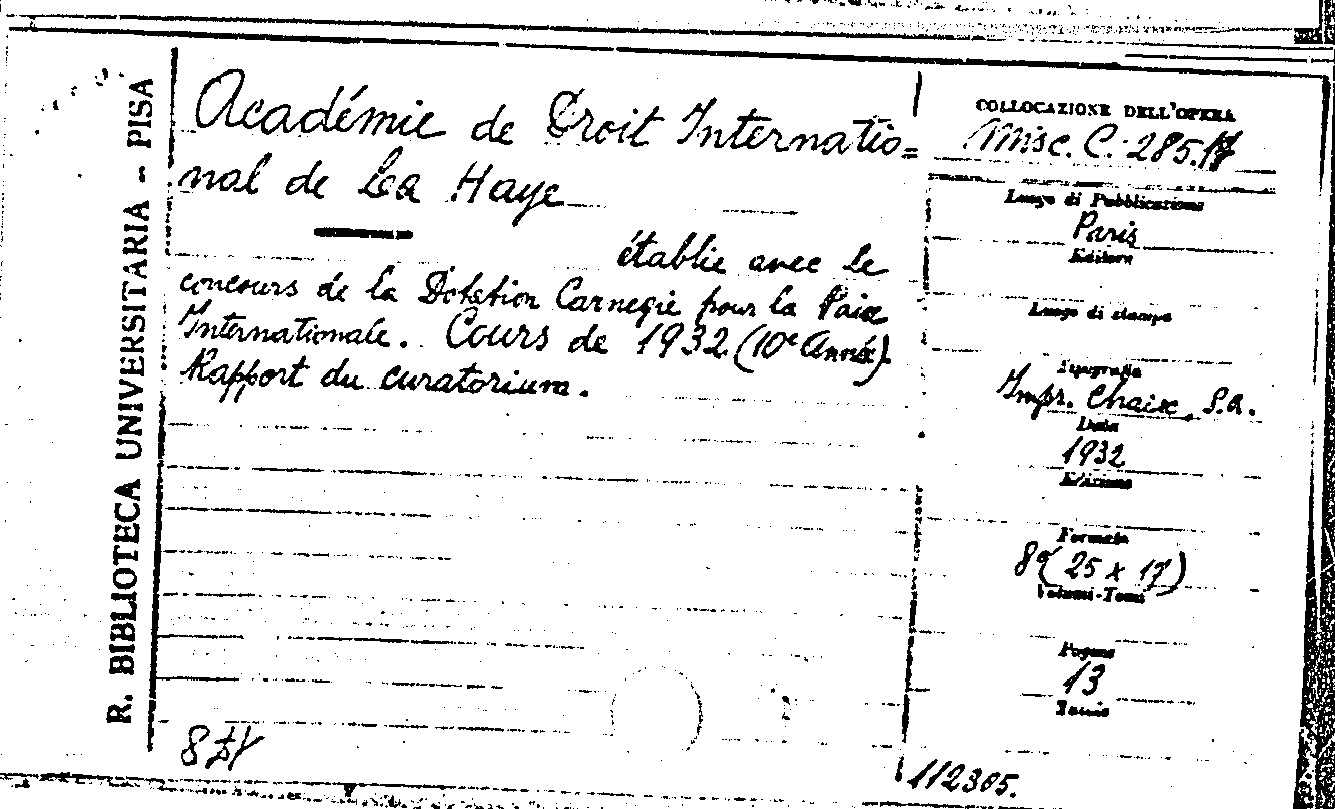 R. BIBLIOTECA UNIVERSITARIA - PISA
Académie de Droit Internatio=
nal de La Haye
établie avec le
concours de la Dotation Carnegie pour la Paix
Internationale. Cours de 1932 (10e Année).
Rapport du curatorium.
COLLOCAZIONE DELL'OPERA
Misc. C. 285.17
Luogo di Pubblicazione
Paris
Editore
Luogo di stampa
Tipografia
Impr. Chaix, S.A.
Data
1932
Edizione
Formato
8º (25 x 17)
Volumi-Tomi
Pagine
13
Tavole
112305.